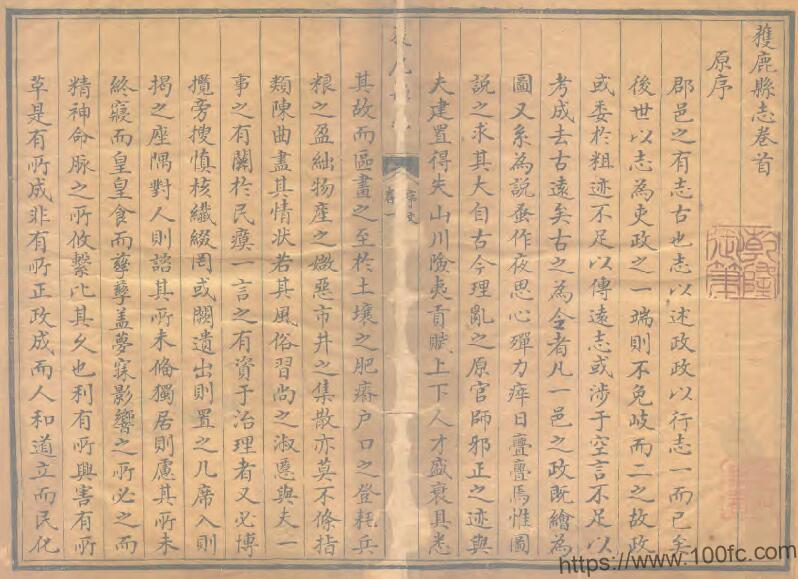 獲鹿縣志卷首
原序
郡邑之有志古也志以述政政以行志一而已矣
後世以志為吏政之一端則不免岐而二之故政
或委於粗迹不足以傳遠志或涉于空言不足以
考成去古遠矣古之為令者凡一邑之政既繪為
圖又系為說蚤作夜思心殫力瘁日亹亹焉惟圖
說之求其大自古今理亂之原官師邪正之迹與
夫建置得失山川險夷貢賦上下人才盛衰具悉
其故而區畫之至於土壤之肥瘠户口之登耗兵
粮之盈絀物產之媺惡市井之集散亦莫不條指
類陳曲盡其情状若其風俗習尚之淑慝與夫一
事之有關於民瘼一言之有資于治理者又必博
攬旁搜慎核纖綴罔或闕遺出則置之几席入則
揭之座隅對人則諮其所未備獨居則慮其所未
終寢而皇皇食而孳孳盖夢寐影響之所必之而
精神命脉之所攸繫比其久也利有所興害有所
草是有所成非有所正政成而人和道立而民化
乾隆
https://www.100fc.com